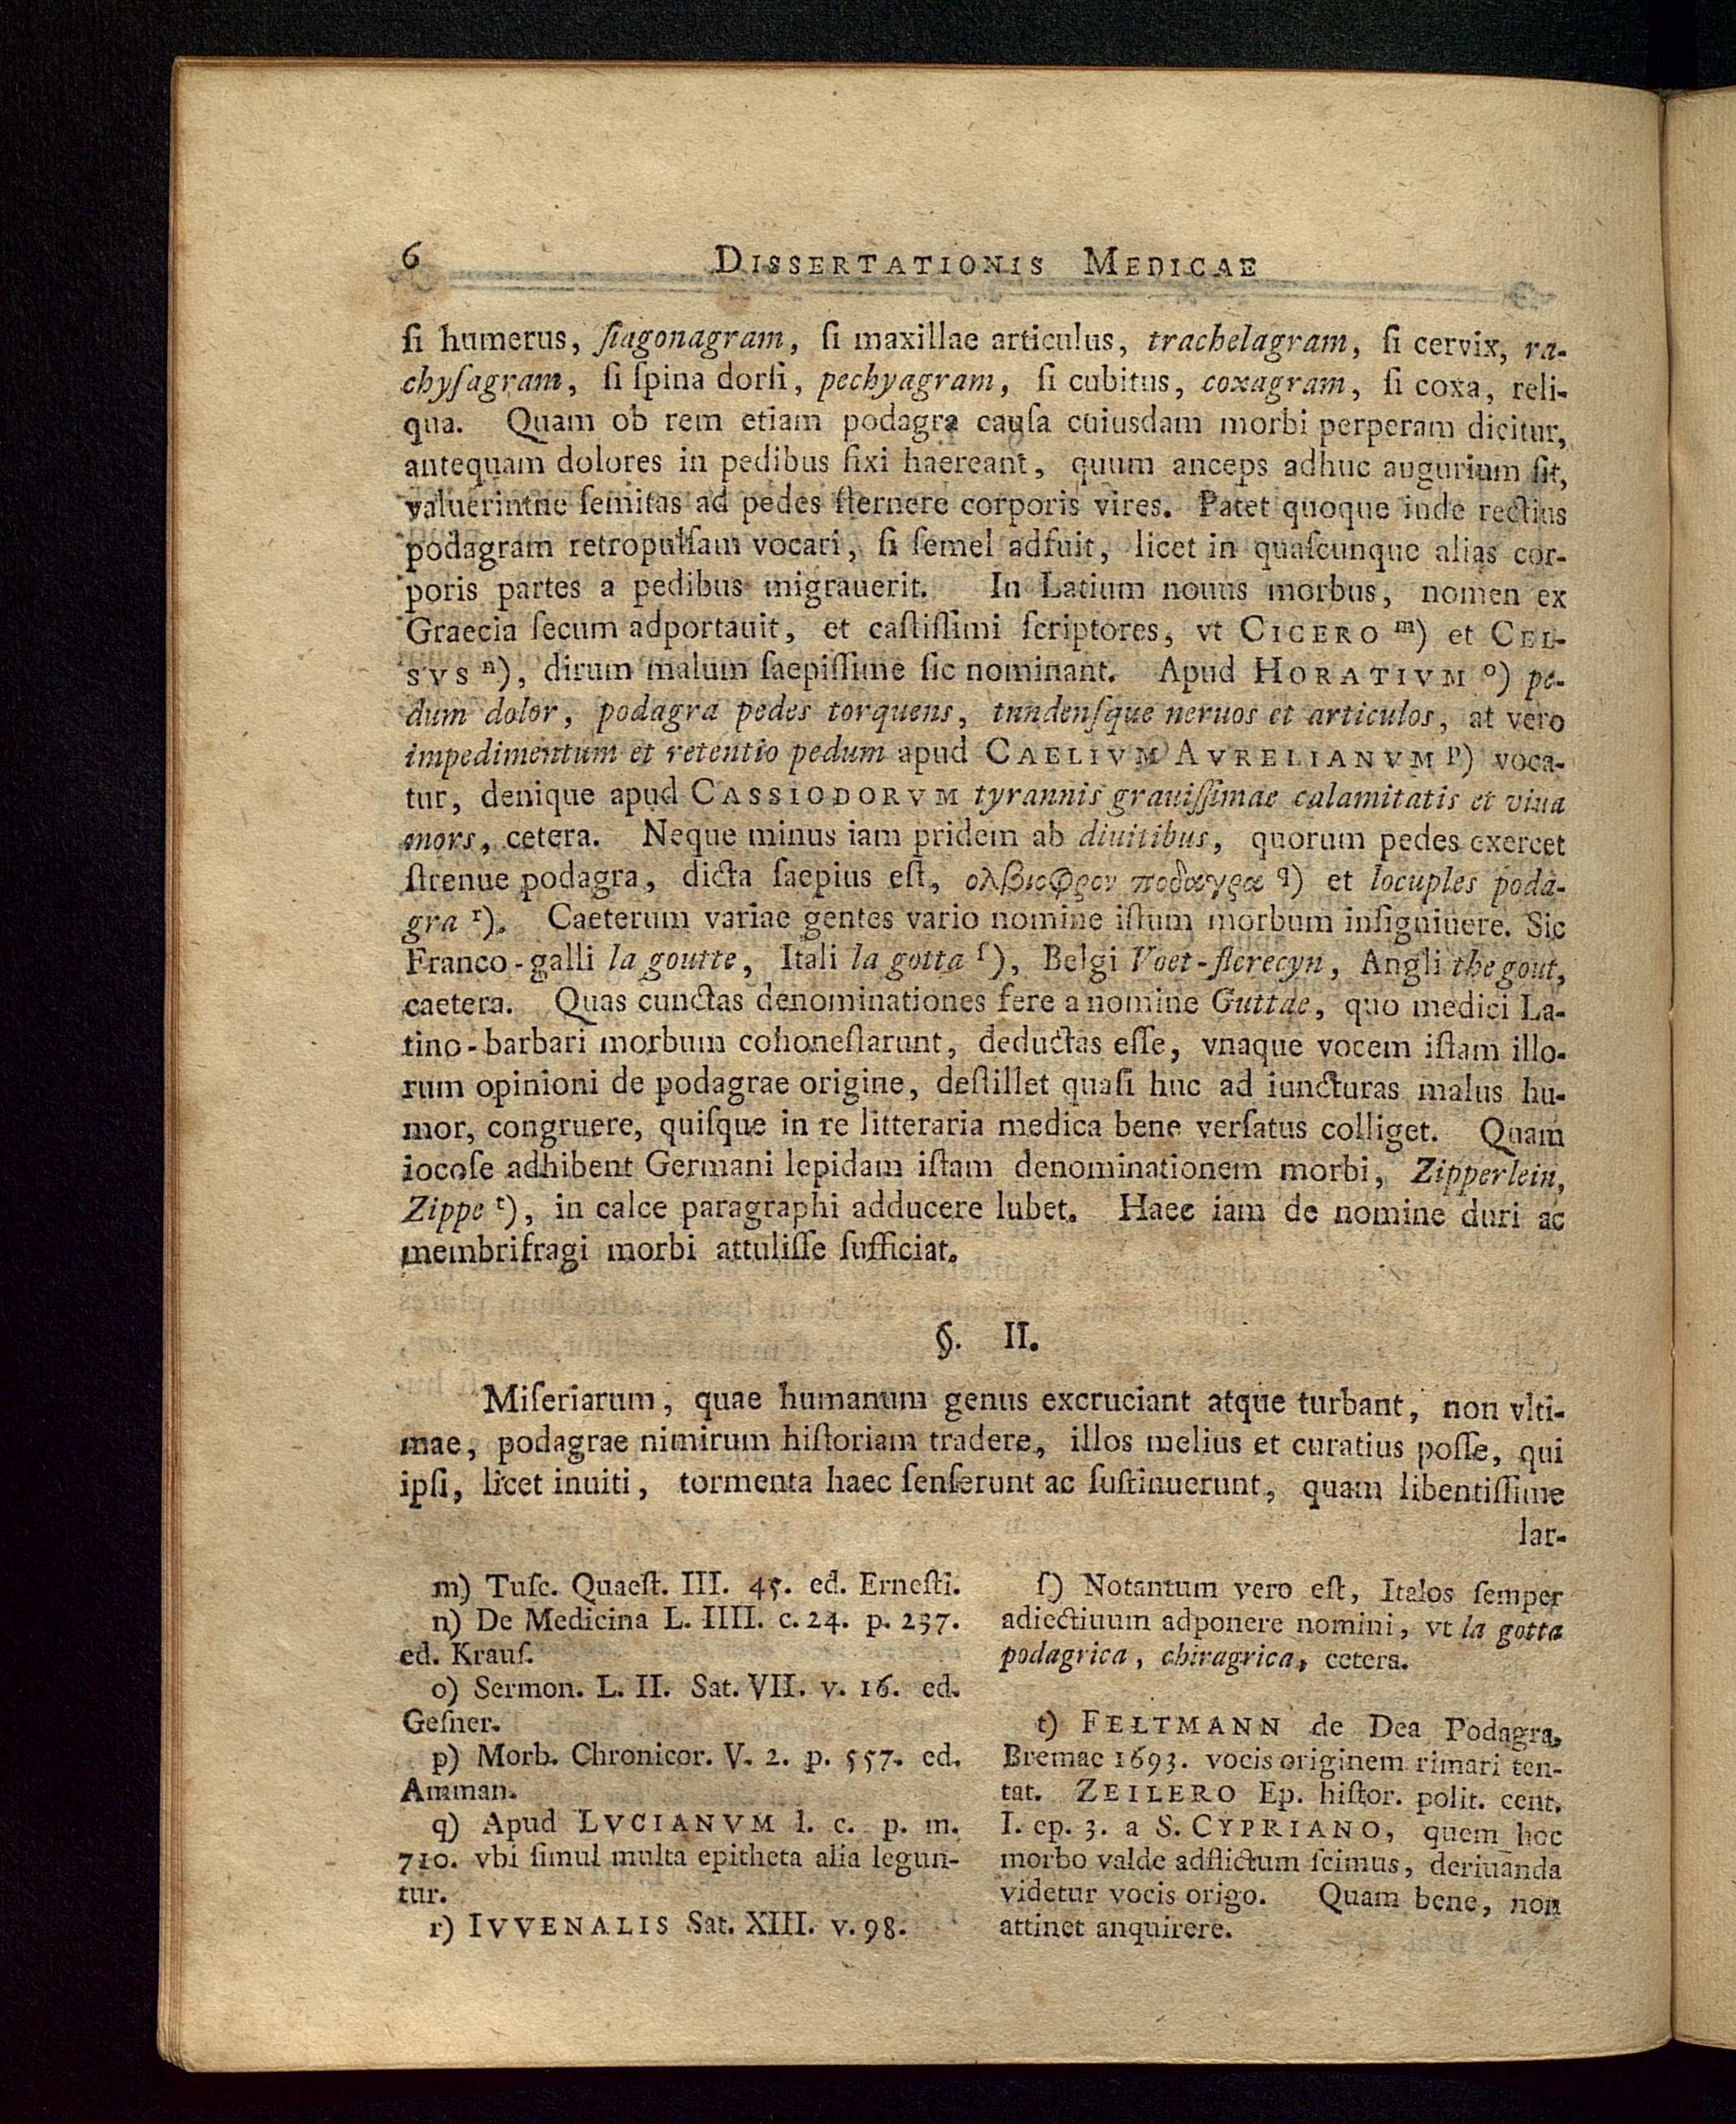 6 DISSERTATIONIS MEDICAE
ſi humerus, ſiagonagram, ſi maxillae articulus, trachelagram, ſi cervix, ra-
chyſagram, ſi ſpina dorſi, pechyagram, ſi cubitus, coxagram, ſi coxa, reli-
qua. Quam ob rem etiam podagra cauſa cuiusdam morbi perperam dicitur,
antequam dolores in pedibus fixi haereant, quum anceps adhuc augurium ſit,
valuerintne ſemitas ad pedes ſternere corporis vires. Patet quoque inde rectius
podagram retropulſam vocari, ſi ſemel adfuit, licet in quaſcunque alias cor-
poris partes a pedibus migrauerit. In Latium nouus morbus, nomen ex
Graecia ſecum adportauit, et caſtiſſimi ſcriptores, vt CICERO m) et CEL-
SVS n), dirum malum ſaepiſſime ſic nominant. Apud HORATIVM o) pe-
dum dolor, podagra pedes torquens, tundenſque neruos et articulos, at vero
impedimentum et retentio pedum apud CAELIVM AVRELIANVM p) voca-
tur, denique apud CASSIODORVM tyrannis grauiſſimae calamitatis et viua
mors, cetera. Neque minus iam pridem ab diuitibus, quorum pedes exercet
ſtrenue podagra, dicta ſaepius eſt, ολβιοφρον ποδαγρα q) et locuples poda-
gra r). Caeterum variae gentes vario nomine iſtum morbum inſigniuere. Sic
Franco-galli la goutte, Itali la gotta ſ), Belgi Voet-flerecyn, Angli the gout,
caetera. Quas cunctas denominationes fere a nomine Guttae, quo medici La-
tino-barbari morbum cohoneſtarunt, deductas eſſe, vnaque vocem iſtam illo-
rum opinioni de podagrae origine, deſtillet quaſi huc ad iuncturas malus hu-
mor, congruere, quiſque in re litteraria medica bene verſatus colliget. Quam
iocoſe adhibent Germani lepidam iſtam denominationem morbi, Zipperlein,
Zippe t), in calce paragraphi adducere lubet. Haec iam de nomine duri ac
membrifragi morbi attuliſſe ſufficiat.
§. II.
Miſeriarum, quae humanum genus excruciant atque turbant, non vlti-
mae, podagrae nimirum hiſtoriam tradere, illos melius et curatius poſſe, qui
ipſi, licet inuiti, tormenta haec ſenſerunt ac ſuſtinuerunt, quam libentiſſime
lar-
m) Tuſc. Quaeſt. III. 45. ed. Erneſti.
n) De Medicina L. IIII. c. 24. p. 237.
ed. Krauſ.
o) Sermon. L. II. Sat. VII. v. 16. ed.
Geſner.
p) Morb. Chronicor. V. 2. p. 557. ed.
Amman.
q) Apud LVCIANVM l. c. p. m.
710. vbi ſimul multa epitheta alia legun-
tur.
r) IVVENALIS Sat. XIII. v. 98.
ſ) Notantum vero eſt, Italos ſemper
adiectiuum adponere nomini, vt la gotta
podagrica, chiragrica, cetera.
t) FELTMANN de Dea Podagra,
Bremae 1693. vocis originem rimari ten-
tat. ZEILERO Ep. hiſtor. polit. cent.
I. ep. 3. a S. CYPRIANO, quem hoc
morbo valde adflictum ſcimus, deriuanda
videtur vocis origo. Quam bene, non
attinet anquirere.